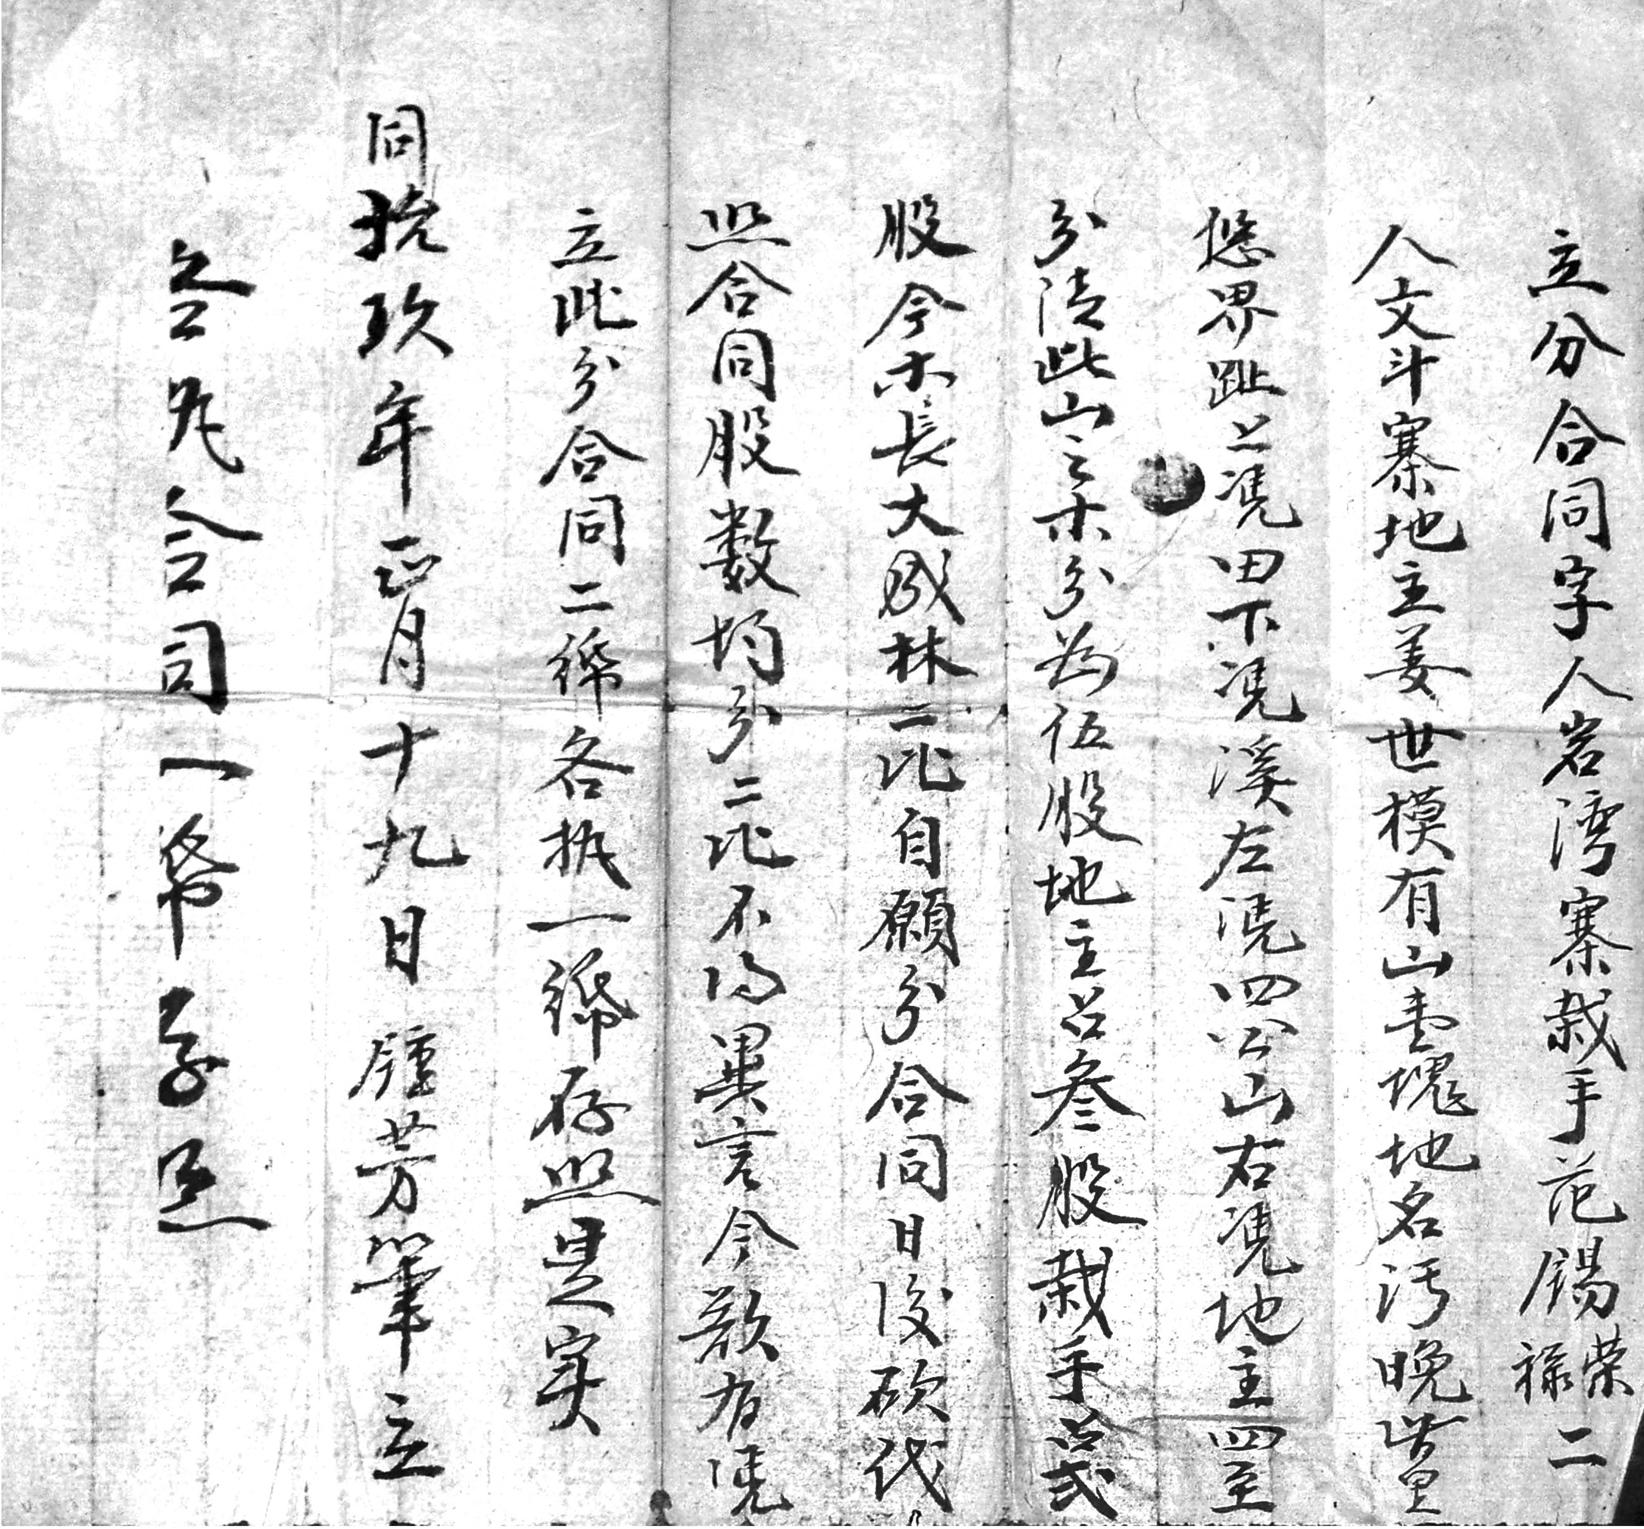 立分合同字人岩湾寨栽手范錫榮祿二
人文斗寨地主姜世模有山壹塊地名污晚皆里
悠界趾上凴田下凴溪左凴四公山右凴地主四至
分清此山之木分為伍股地主占叁股栽手占貳
股今木長大成林二比自願分合同日後砍伐
照合同股数均分二比不得異言今欲有凴
立此分合同二帋各执一帋存照是实
同治玖年正月十九日鐘芳筆立